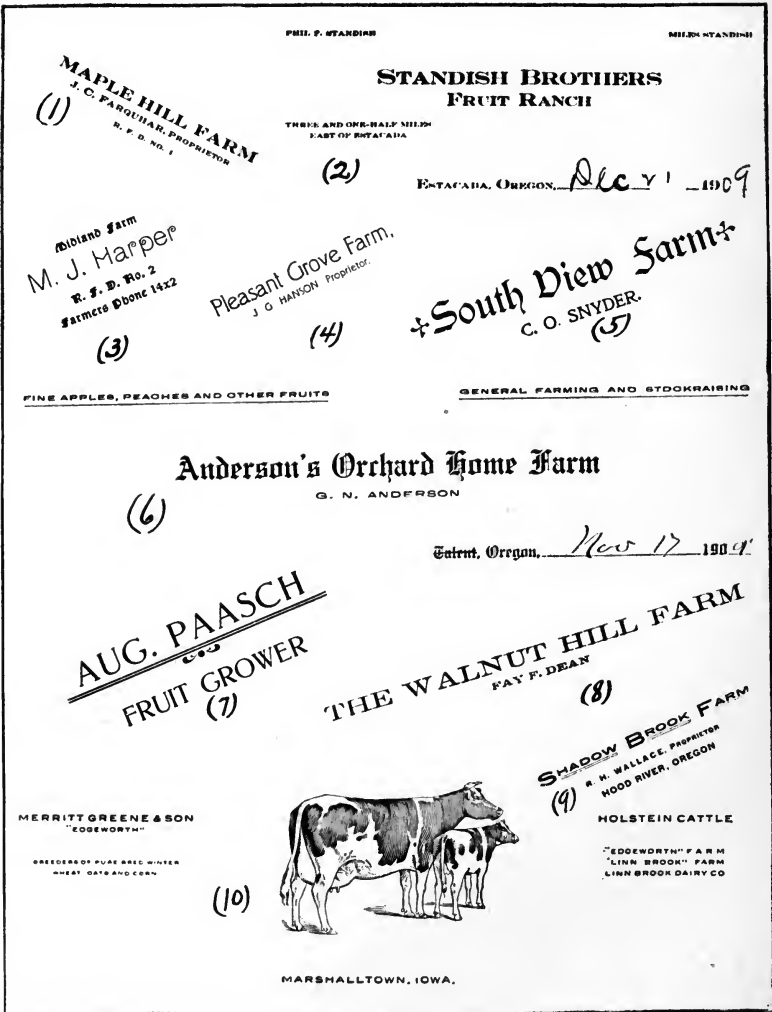 PHIL F. STANDISH
MILES STANDISH
MAPLE HILL FARM
J. C. FARQUHAR, PROPRIETOR
R. F. D. NO. 1
(1)
STANDISH BROTHERS
FRUIT RANCH
THREE AND ONE-HALF MILES
EAST OF ESTACADA
(2)
ESTACADA, OREGON, Dec 21 1909
Midland Farm
M. J. Harper
R. F. D. No. 2
Farmers Phone 14x2
(3)
Pleasant Grove Farm,
J G HANSON Proprietor.
(4)
South View Farm
C. O. SNYDER.
(5)
FINE APPLES, PEACHES AND OTHER FRUITS
GENERAL FARMING AND STOCKRAISING
Anderson's Orchard Home Farm
G. N. ANDERSON
(6)
Talent, Oregon, Nov 17 190
AUG. PAASCH
FRUIT GROWER
(7)
THE WALNUT HILL FARM
FAY F. DEAN
(8)
SHADOW BROOK FARM
R. H. WALLACE, PROPRIETOR
HOOD RIVER, OREGON
(9)
MERRITT GREENE & SON
"EDGEWORTH"
BREEDERS OF PURE BRED WINTER
WHEAT OATS AND CORN
(10)
HOLSTEIN CATTLE
"EDGEWORTH" FARM
"LINN BROOK" FARM
LINN BROOK DAIRY CO
MARSHALLTOWN, IOWA.